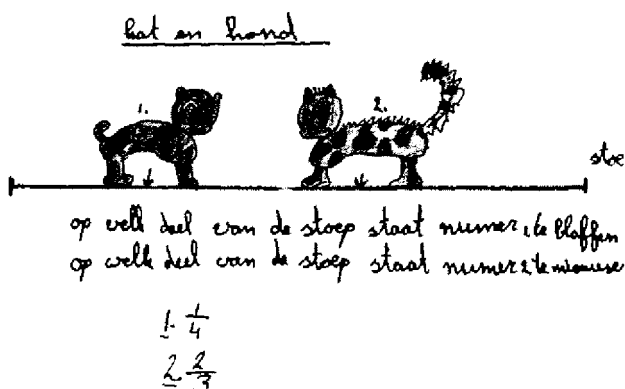 kat en hond
1.
2.
stoe
op welk deel van de stoep staat numer 1 te blaffen
op welk deel van de stoep staat numer 2 te miauwe
1. 1/4
2. 2/3